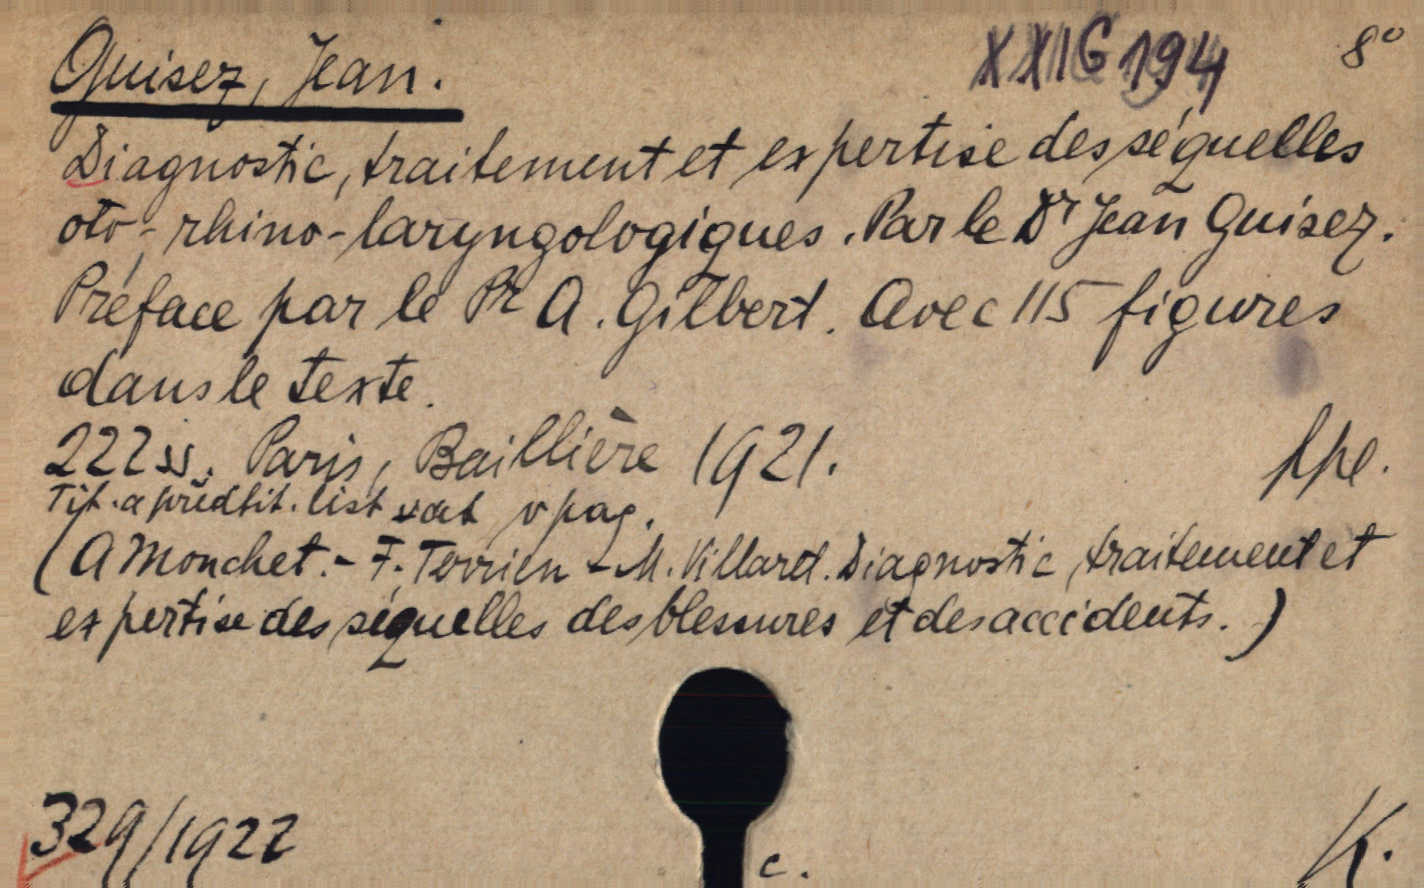 Guisez, Jean.
XXIG 194
8°
Diagnostic, traitement et expertise des séquelles
oto-rhino-laryngologiques. Par le Dr Jean Guisez.
Préface par le Pr A. Gilbert. Avec 115 figures
dans le texte.
222 ss. Paris, Baillière 1921.
ppe.
Tit. a předtit. list v pag.
(A Mouchet. - F. Terrien - M. Villard. Diagnostic, traitement et
expertise des séquelles des blessures et des accidents.)
329/1922
c.
K.